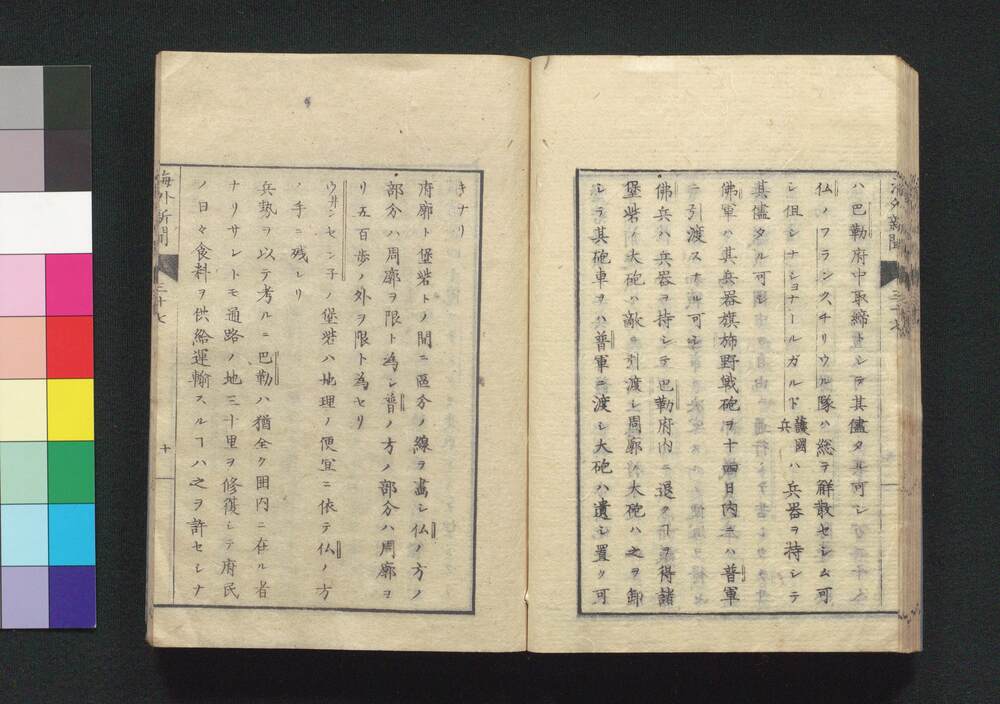 海外新聞 三十七
ハ巴勒府中取締ニシテ其儘タル可シ
仏ノフランク、チリウル隊ハ総ヲ觧散セシム可
シ但シナショナールガルド護國兵ハ兵器ヲ持シテ
其儘タル可シ
佛軍ハ其兵器旗旆野戰砲ヲ十四日内ニハ普軍
ニ引渡スナル可シ
佛兵ハ兵器ヲ持シテ巴勒府内ニ退クヿヲ得諸
堡砦ノ大砲ハ敵ニ引渡シ周廓ノ大砲ハ之ヲ卸
シテ其砲車ヲハ普軍ニ渡シ大砲ハ遺シ置ク可
キナリ
府廓ト堡砦トノ間ニ區分ノ線ヲ畫シ仏ノ方ノ
部分ハ周廓ヲ限ト為シ普ノ方ノ部分ハ周廓ヨ
リ五百歩ノ外ヲ限ト為セリ
ウ井ンセン子ノ堡砦ハ地理ノ便宜ニ依テ仏ノ方
ノ手ニ残レリ
兵勢ヲ以テ考ルニ巴勒ハ猶全ク囲内ニ在ル者
ナリサレトモ通路ノ地三十里ヲ修復シテ府民
ノ日々食料ヲ供給運輸スルヿハ之ヲ許セシナ
海外新聞 三十七 十